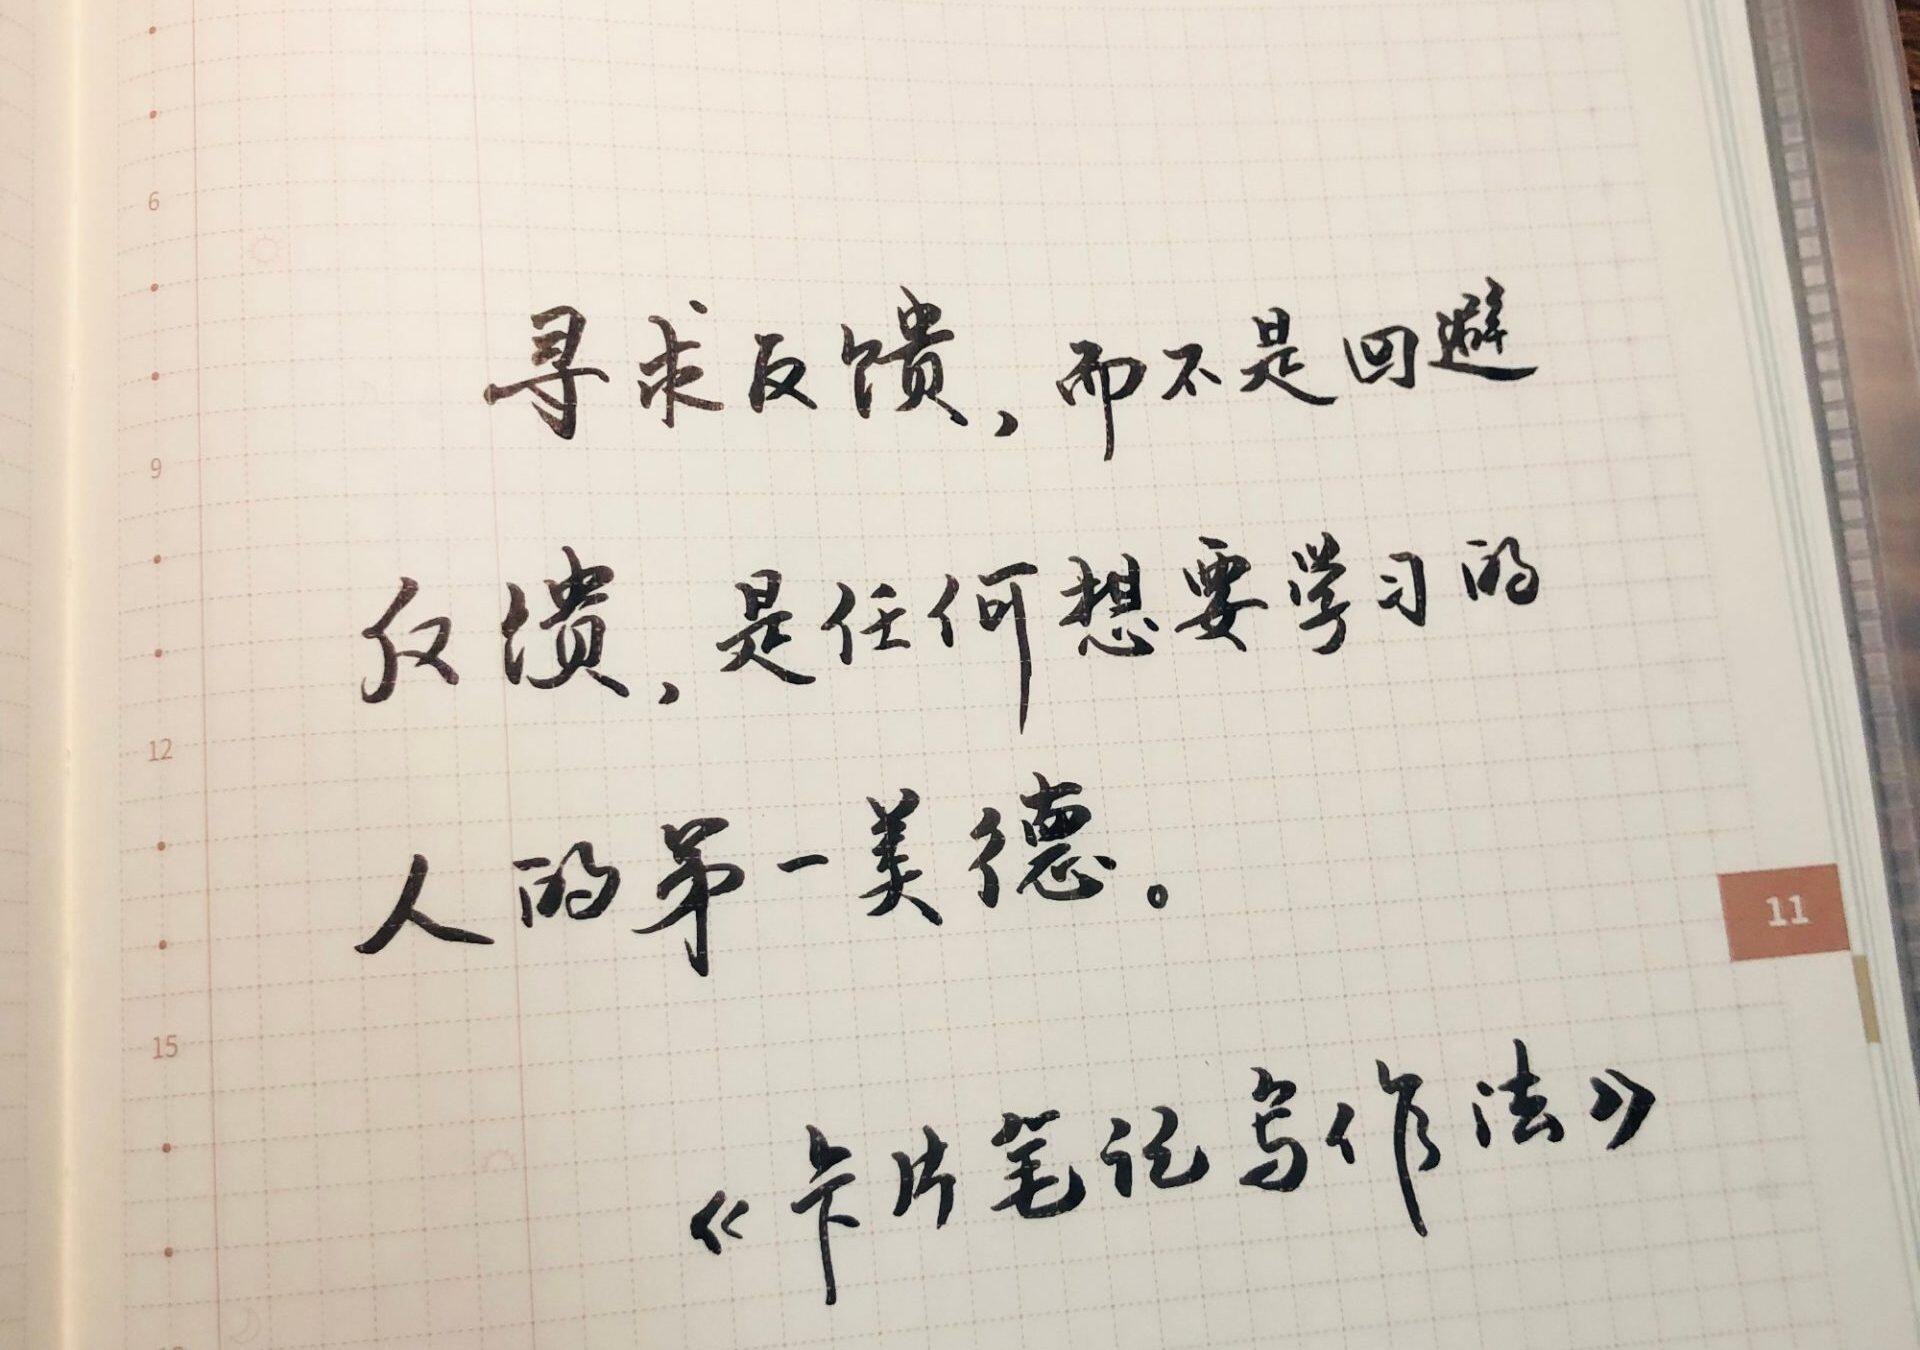 6
寻求反馈,而不是回避
9
反馈,是任何想要学习的
12
人的第一美德。
11
15
《卡片笔记写作法》